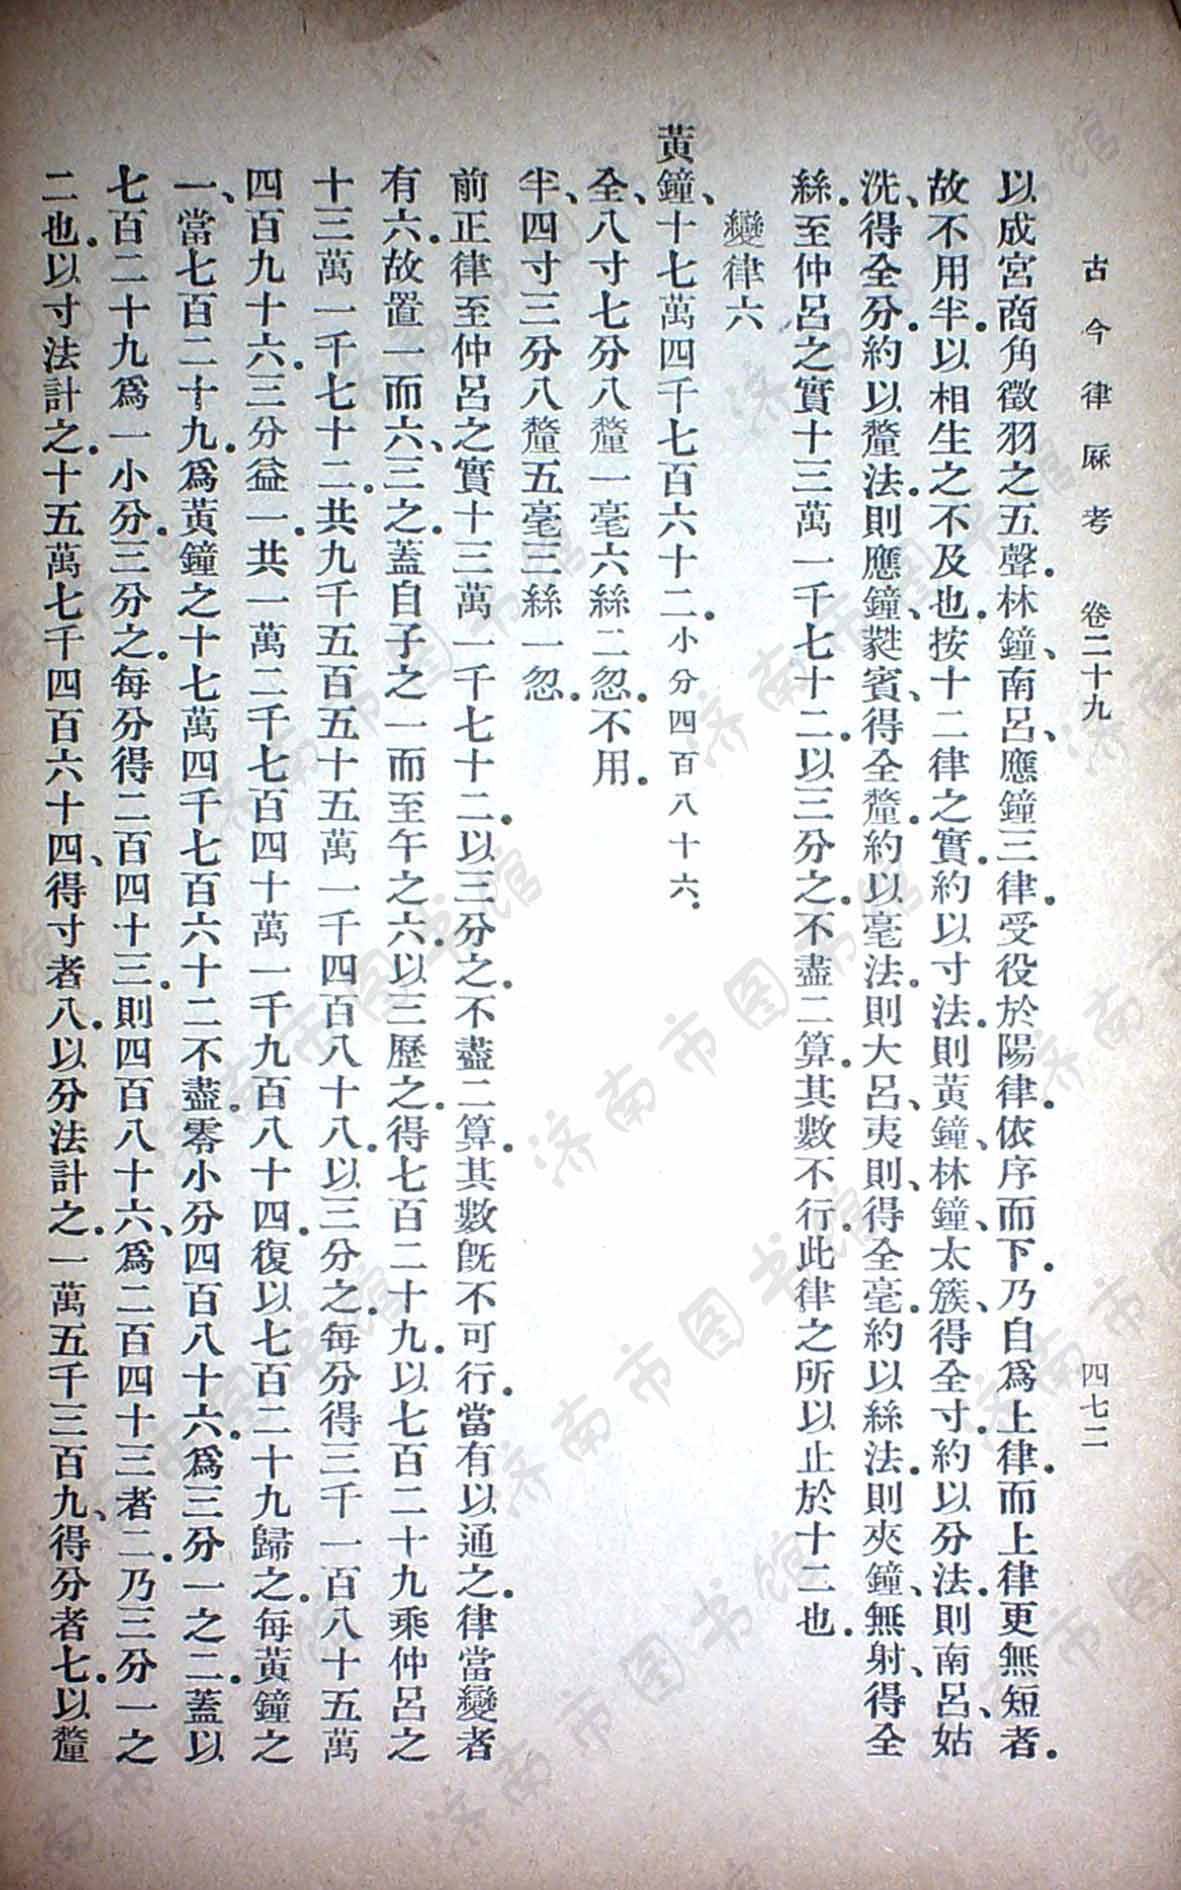 古今律厤考 卷二十九 四七二
以成宮商角徵羽之五聲.林鐘、南呂、應鐘三律.受役於陽律.依序而下.乃自爲上律.而上律更無短者.
故不用半.以相生之不及也.按十二律之實.約以寸法.則黃鐘、林鐘、太簇、得全寸.約以分法.則南呂、姑
洗、得全分.約以釐法.則應鐘、蕤賓、得全釐.約以毫法.則大呂、夷則、得全毫.約以絲法.則夾鐘、無射、得全
絲.至仲呂之實十三萬一千七十二.以三分之.不盡二算.其數不行.此律之所以止於十二也.
變律六
黃鐘、十七萬四千七百六十二.小分四百八十六.
全、八寸七分八釐一毫六絲二忽.不用.
半、四寸三分八釐五毫三絲一忽.
前正律至仲呂之實十三萬一千七十二.以三分之.不盡二算.其數旣不可行.當有以通之.律當變者
有六.故置一而六、三之.蓋自子之一而至午之六.以三歷之.得七百二十九.以七百二十九乘仲呂之
十三萬一千七十二.共九千五百五十五萬一千四百八十八.以三分之.每分得三千一百八十五萬
四百九十六.三分益一.共一萬二千七百四十萬一千九百八十四.復以七百二十九歸之.每黃鐘之
一、當七百二十九.爲黃鐘之十七萬四千七百六十二不盡.零小分四百八十六.爲三分一之二.蓋以
七百二十九爲一小分.三分之.每分得二百四十三.則四百八十六、爲二百四十三者二.乃三分一之
二也.以寸法計之.十五萬七千四百六十四、得寸者八.以分法計之.一萬五千三百九、得分者七.以釐